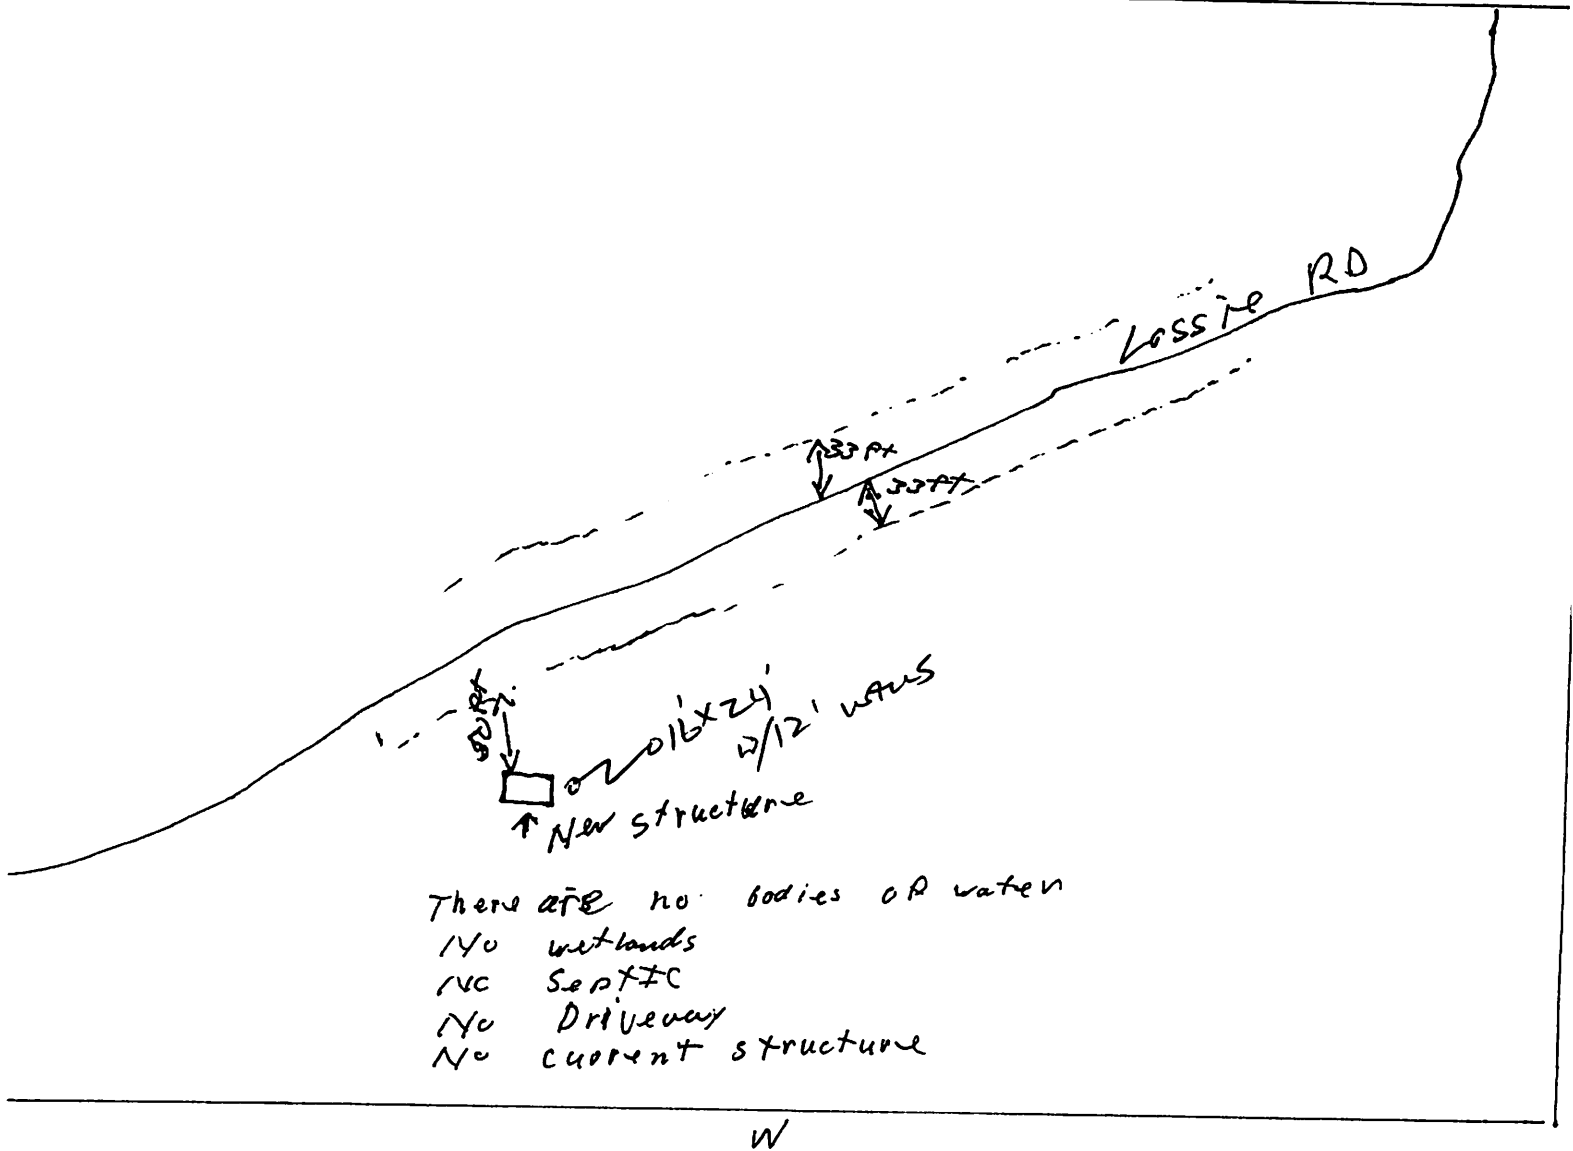 Lassie RD
33 Ft
33 Ft
50 Ft
16' x 24'
w/12' walls
New structure
There are no bodies of water
No wetlands
No Septic
No Driveway
No current structure
W